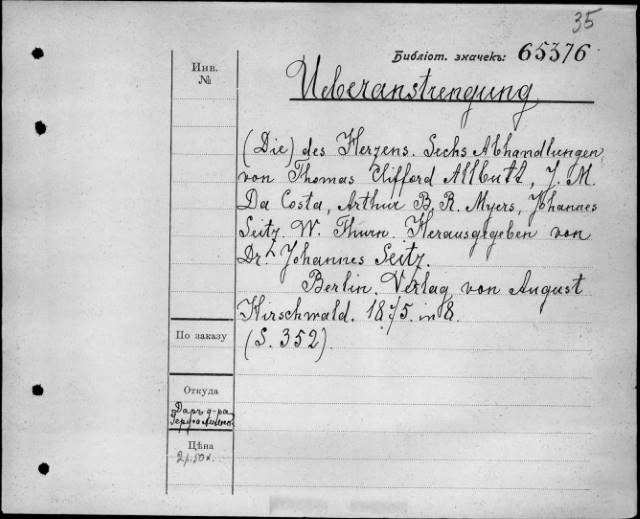 35
Библіот. значекъ: 65376
Инв.
№
Ueberanstrengung
(Die) des Herzens. Sechs Abhandlungen
von Thomas Clifford Allbutt, J. M.
Da Costa, Arthur B. R. Myers, Johannes
Seitz. W. Thurn. Herausgegeben von
Dr. Johannes Seitz.
Berlin. Verlag von August
Hirschwald. 1875. in 8.
По заказу
(S. 352).
Откуда
Даръ д-ра
Цѣна
2 р. 50 к.